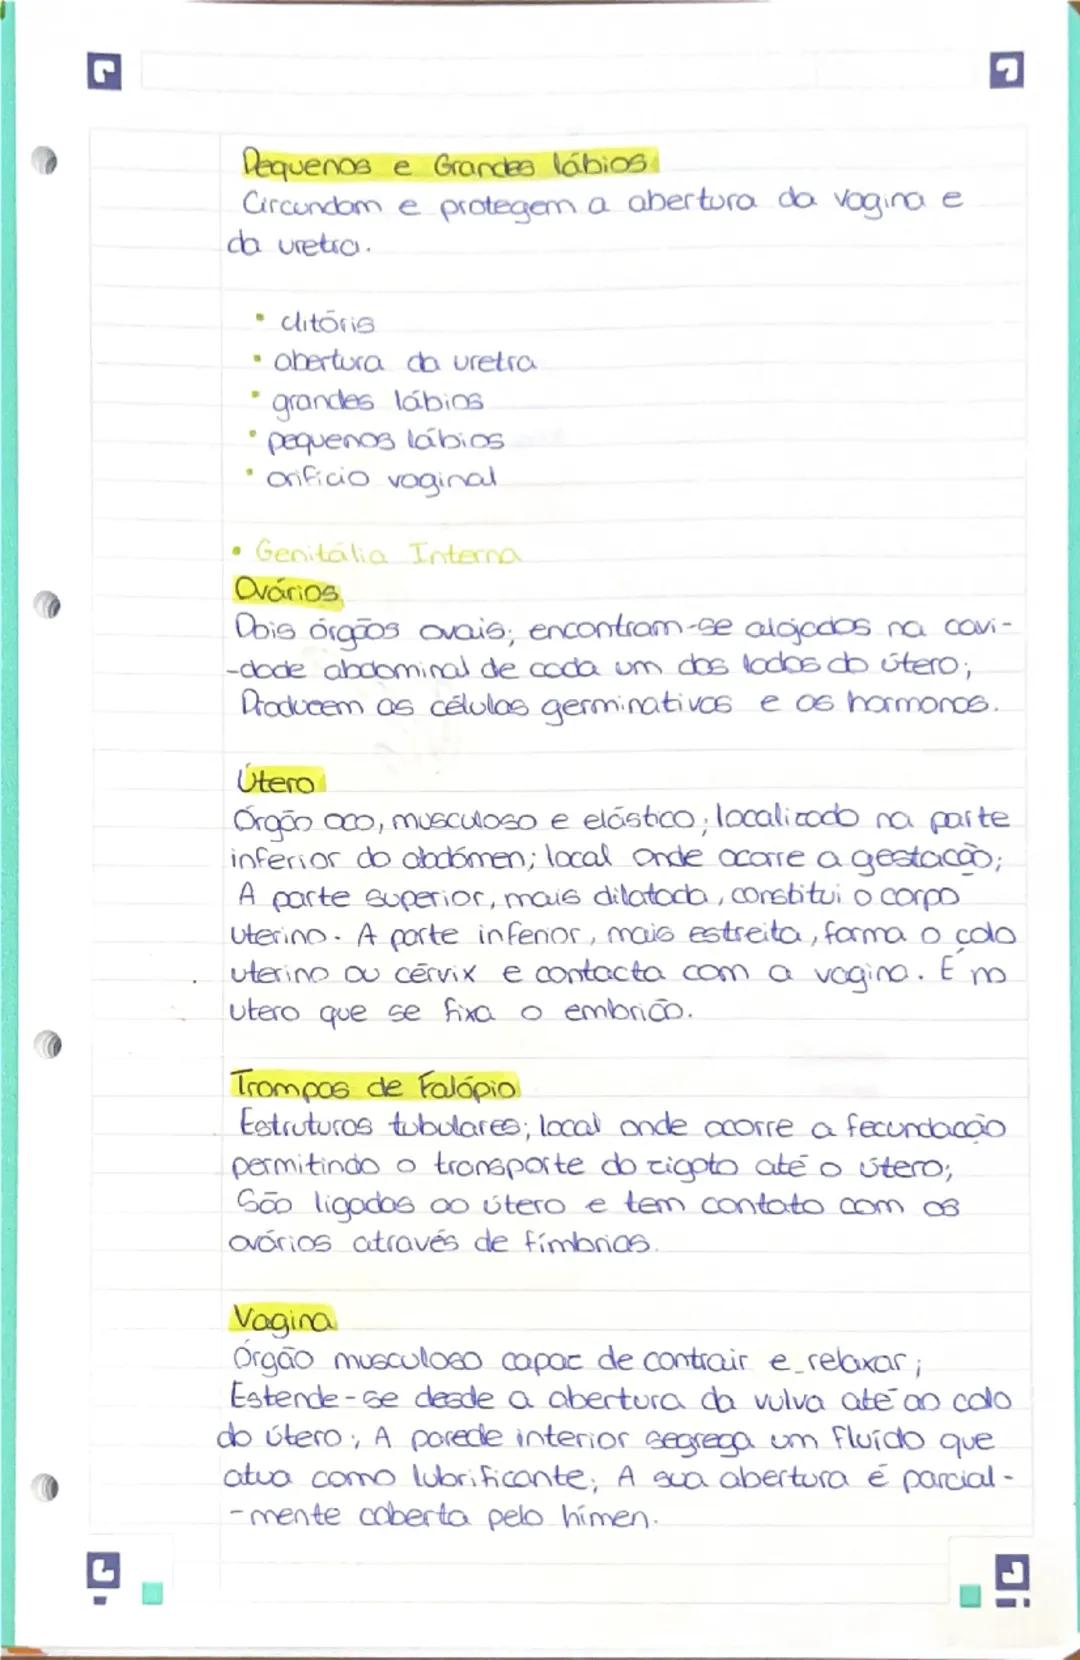 Pequenos e Grandes lábios
Circundam e protegem a abertura da vagina e
da uretra.
• clitóris
• abertura da uretra
• grandes lábios
• pequenos lábios
• orifício vaginal
• Genitália Interna
Ovários
Dois órgãos ovais; encontram-se alojados na cavi-
-dade abdominal de cada um dos lados do útero;
Producem as células germinativas e as hormonas.
Útero
Órgão oco, musculoso e elástico; localizado na parte
inferior do abdómen; local onde ocorre a gestacão;
A parte superior, mais dilatada, constitui o corpo
uterino. A parte inferior, mais estreita, forma o colo
uterino ou cérvix e contacta com a vagina. É no
utero que se fixa o embrião.
Trompas de Falópio
Estruturas tubulares; local onde ocorre a fecundacão
permitindo o transporte do zigoto até o útero;
São ligadas ao útero e tem contato com os
ovários através de fímbrias.
Vagina
Órgão musculoso capaz de contrair e relaxar;
Estende-se desde a abertura da vulva até ao colo
do útero; A parede interior segrega um fluído que
atua como lubrificante; A sua abertura é parcial-
-mente coberta pelo hímen.